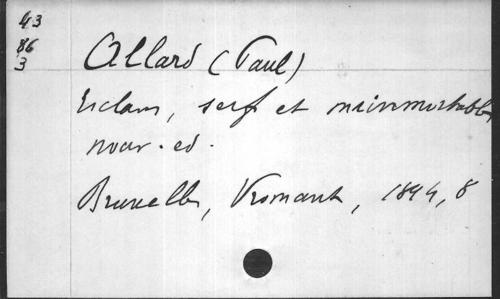 43
86
3
Allard (Paul)
Esclaves, serfs et mainmortables
nouv. ed.
Bruxelles, Vromant, 1894, 8